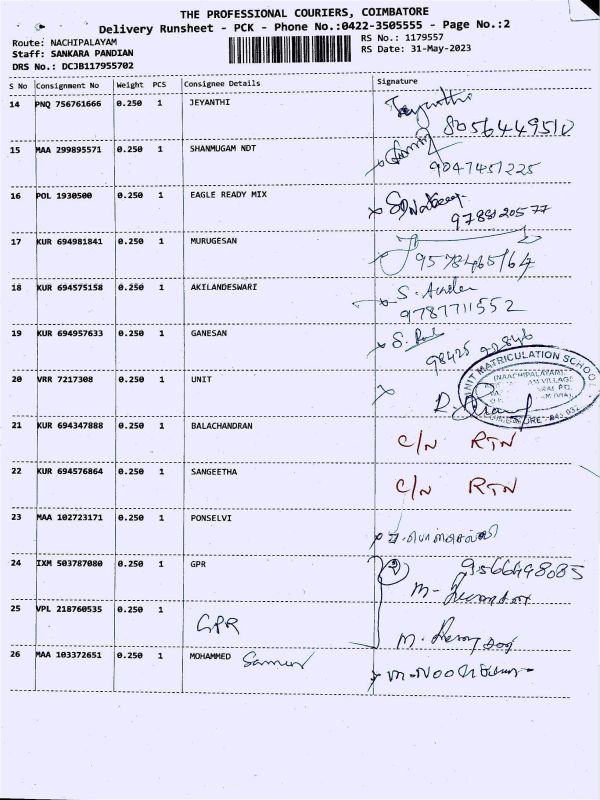 THE PROFESSIONAL COURIERS, COIMBATORE
Delivery Runsheet - PCK - Phone No.:0422-3505555 - Page No.:2
Route: NACHIPALAYAM
Staff: SANKARA PANDIAN
DRS No.: DCJB117955702
RS No.: 1179557
RS Date: 31-May-2023
S No Consignment No Weight PCS Consignee Details Signature
14 PNQ 756761666 0.250 1 JEYANTHI Jeyanthi
8056449510
15 MAA 299895571 0.250 1 SHANMUGAM NDT
9047451225
16 POL 1930500 0.250 1 EAGLE READY MIX
9788120577
17 KUR 694981841 0.250 1 MURUGESAN
9578465164
18 KUR 694575158 0.250 1 AKILANDESWARI S.
9787711552
19 KUR 694957633 0.250 1 GANESAN S.
98425 92846
20 VRR 7217308 0.250 1 UNIT
UNIT MATRICULATION SCHOOL
21 KUR 694347888 0.250 1 BALACHANDRAN C/N RTN
22 KUR 694576864 0.250 1 SANGEETHA C/N RTN
23 MAA 102723171 0.250 1 PONSELVI
24 IXM 503787080 0.250 1 GPR 2 9566498085
M-
25 VPL 218760535 0.250 1 GPR
M.
26 MAA 103372651 0.250 1 MOHAMMED